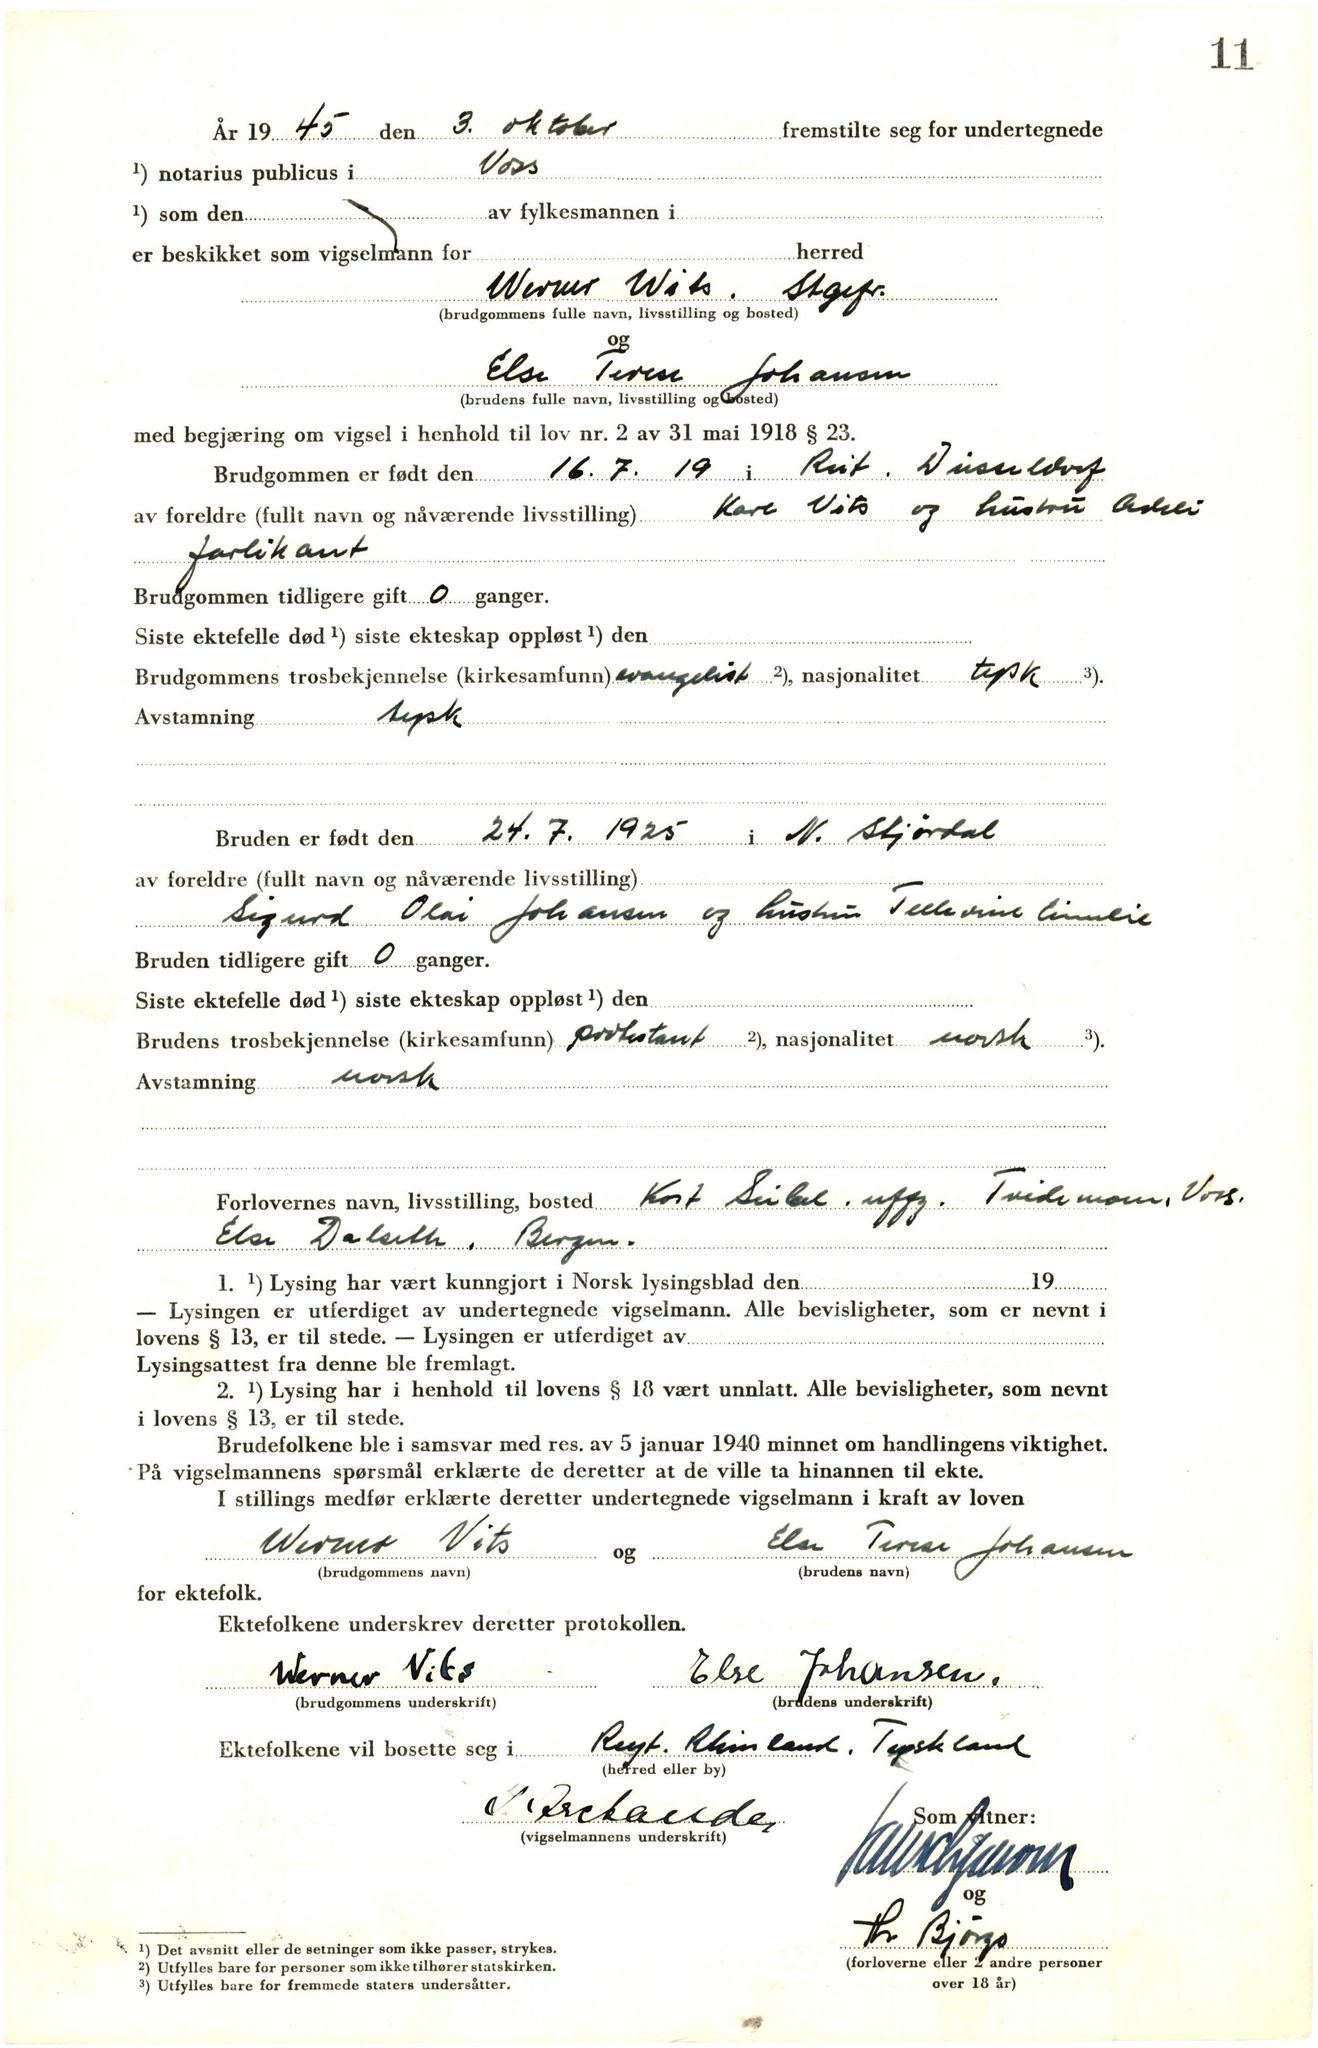 11
År 19 45 den 3. oktober fremstilte seg for undertegnede
¹) notarius publicus i Voss
¹) som den av fylkesmannen i
er beskikket som vigselmann for herred
Werner Vits. Stgefr.
(brudgommens fulle navn, livsstilling og bosted)
og
Else Terese Johansen
(brudens fulle navn, livsstilling og bosted)
med begjæring om vigsel i henhold til lov nr. 2 av 31 mai 1918 § 23.
Brudgommen er født den 16. 7. 19 i Düsseldorf
av foreldre (fullt navn og nåværende livsstilling) Karl Vits og hustru
Brudgommen tidligere gift 0 ganger.
Siste ektefelle død ¹) siste ekteskap oppløst ¹) den
Brudgommens trosbekjennelse (kirkesamfunn) evangelist ²), nasjonalitet tysk ³).
Avstamning tysk
Bruden er født den 24. 7. 1925 i N. Stjördal
av foreldre (fullt navn og nåværende livsstilling)
Sigurd Olai Johansen og hustru
Bruden tidligere gift 0 ganger.
Siste ektefelle død ¹) siste ekteskap oppløst ¹) den
Brudens trosbekjennelse (kirkesamfunn) protestant ²), nasjonalitet norsk ³).
Avstamning norsk
Forlovernes navn, livsstilling, bosted uffz. Tvidemoen, Voss.
Else Dalseth. Bergen.
1. ¹) Lysing har vært kunngjort i Norsk lysingsblad den 19
— Lysingen er utferdiget av undertegnede vigselmann. Alle bevisligheter, som er nevnt i
lovens § 13, er til stede. — Lysingen er utferdiget av
Lysingsattest fra denne ble fremlagt.
2. ¹) Lysing har i henhold til lovens § 18 vært unnlatt. Alle bevisligheter, som nevnt
i lovens § 13, er til stede.
Brudefolkene ble i samsvar med res. av 5 januar 1940 minnet om handlingens viktighet.
På vigselmannens spørsmål erklærte de deretter at de ville ta hinannen til ekte.
I stillings medfør erklærte deretter undertegnede vigselmann i kraft av loven
Werner Vits og Else Terese Johansen
(brudgommens navn) (brudens navn)
for ektefolk.
Ektefolkene underskrev deretter protokollen.
Werner Vits Else Johansen.
(brudgommens underskrift) (brudens underskrift)
Ektefolkene vil bosette seg i Rhinland. Tyskland
(herred eller by)
(vigselmannens underskrift)
Som vitner:
og
Björgo
(forloverne eller 2 andre personer
over 18 år)
¹) Det avsnitt eller de setninger som ikke passer, strykes.
²) Utfylles bare for personer som ikke tilhører statskirken.
³) Utfylles bare for fremmede staters undersåtter.